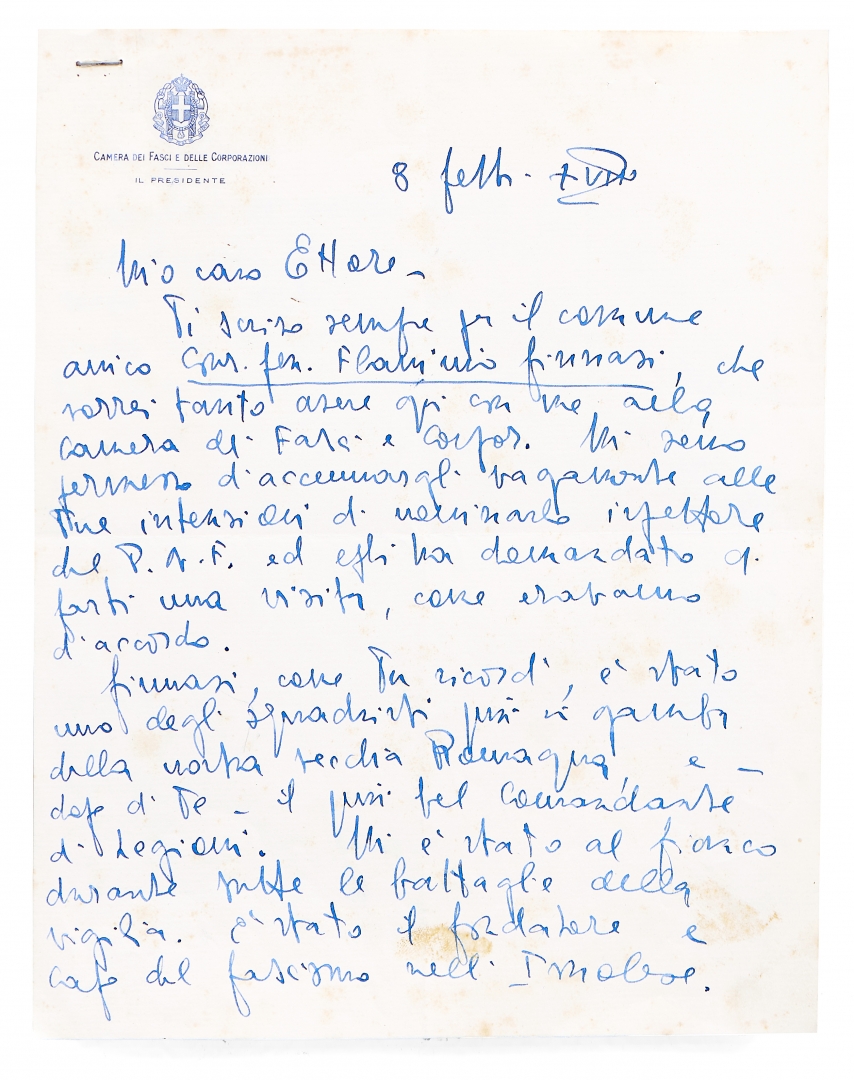 CAMERA DEI FASCI E DELLE CORPORAZIONI
IL PRESIDENTE
8 febb. XVIII°
Mio caro Ettore –
Ti scrivo sempre per il comune
amico Cons. Gen. Flaminio Ginnasi, che
vorrei tanto avere qui con me alla
Camera dei Fasci e Corpor. Mi sono
permesso d'accennargli vagamente alle
Tue intenzioni di nominarlo ispettore
del P.N.F. ed egli ha domandato di
farti una visita, come eravamo
d'accordo.
Ginnasi, come Tu ricordi, è stato
uno degli squadristi più in gamba
della nostra vecchia Romagna, e –
dopo di Te – il più bel Comandante
di Legioni. Mi è stato al fianco
durante tutte le battaglie della
vigilia. È stato il fondatore e
capo del fascismo nell'Imolese.